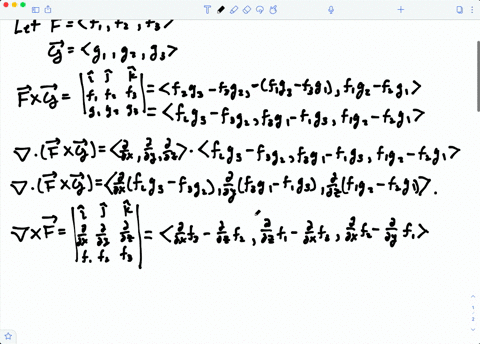 Let F = <f₁, f₂, f₃>
G⃗ = <g₁, g₂, g₃>
F⃗×G⃗ = |î ĵ k̂; f₁ f₂ f₃; g₁ g₂ g₃| = <f₂g₃ - f₃g₂, -(f₁g₃ - f₃g₁), f₁g₂ - f₂g₁>
= <f₂g₃ - f₃g₂, f₃g₁ - f₁g₃, f₁g₂ - f₂g₁>
∇·(F⃗×G⃗) = <∂/∂x, ∂/∂y, ∂/∂z> · <f₂g₃ - f₃g₂, f₃g₁ - f₁g₃, f₁g₂ - f₂g₁>
∇·(F⃗×G⃗) = <∂/∂x(f₂g₃ - f₃g₂), ∂/∂y(f₃g₁ - f₁g₃), ∂/∂z(f₁g₂ - f₂g₁)>.
∇×F⃗ = |î ĵ k̂; ∂/∂x ∂/∂y ∂/∂z; f₁ f₂ f₃| = <∂/∂y f₃ - ∂/∂z f₂, ∂/∂z f₁ - ∂/∂x f₃, ∂/∂x f₂ - ∂/∂y f₁>